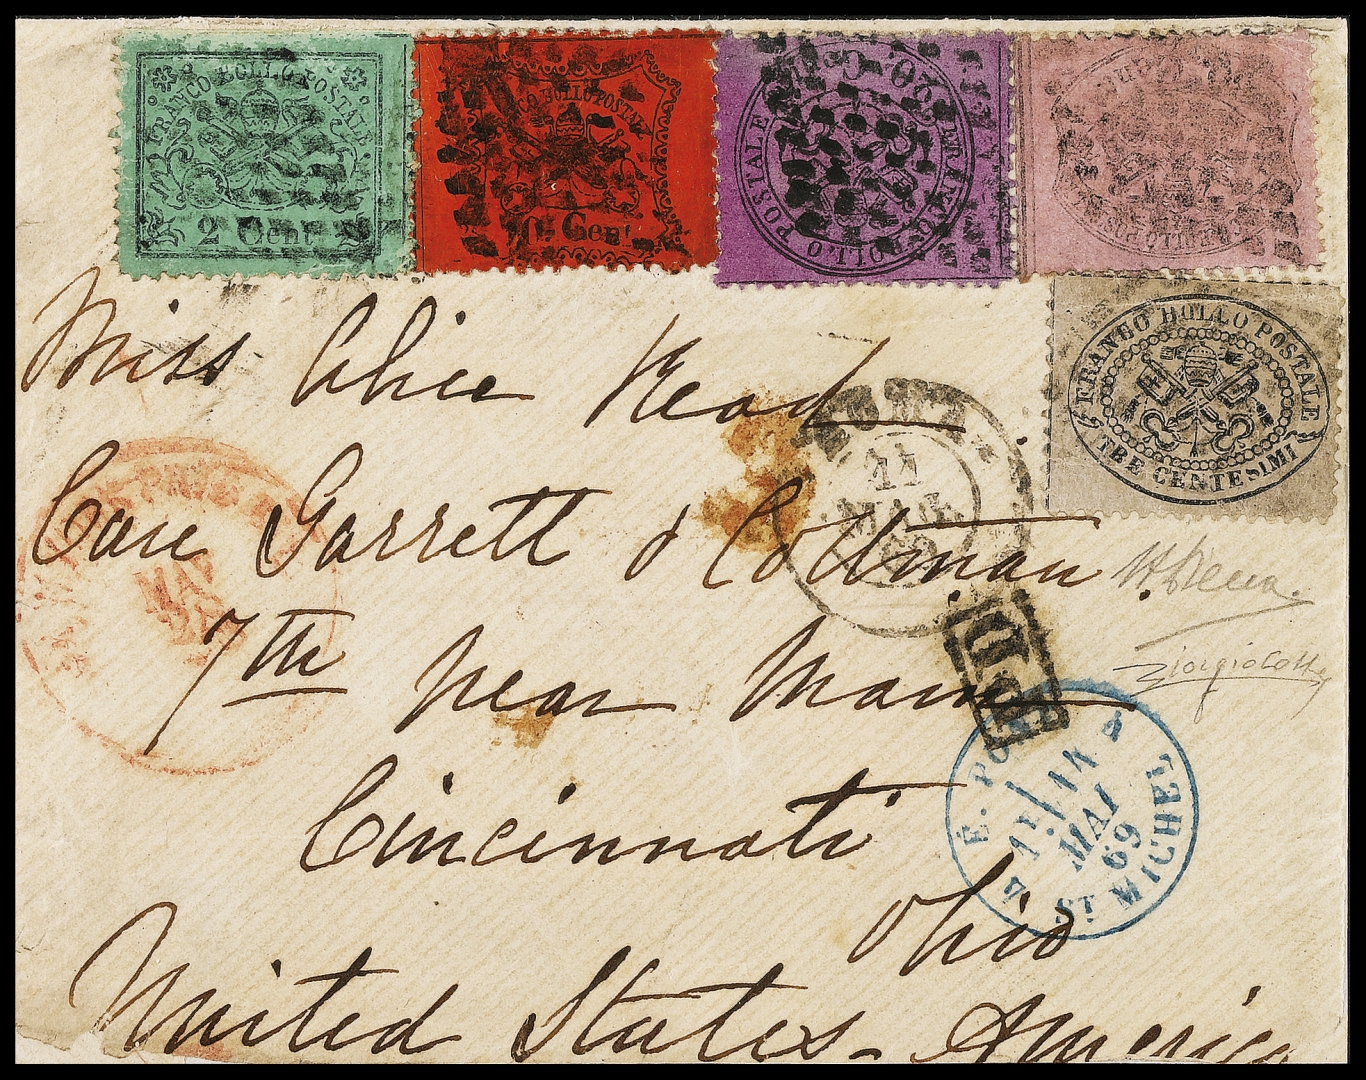 FRANCO BOLLO POSTALE
2 Cent
CO BOLLO POSTALE
Cen
20 CENT FRANCO BOLLO POSTALE
FRANCO BOLLO POSTALE
TRE CENTESIMI
Miss Alice Read
Care Garrett & Cottman
7th near Main
Cincinnati
Ohio
United States - America
ROMA
11
MAG
69
PD
MAY
E. PONT
14
MAI
69
ST MICHEL
Giorgio Colla